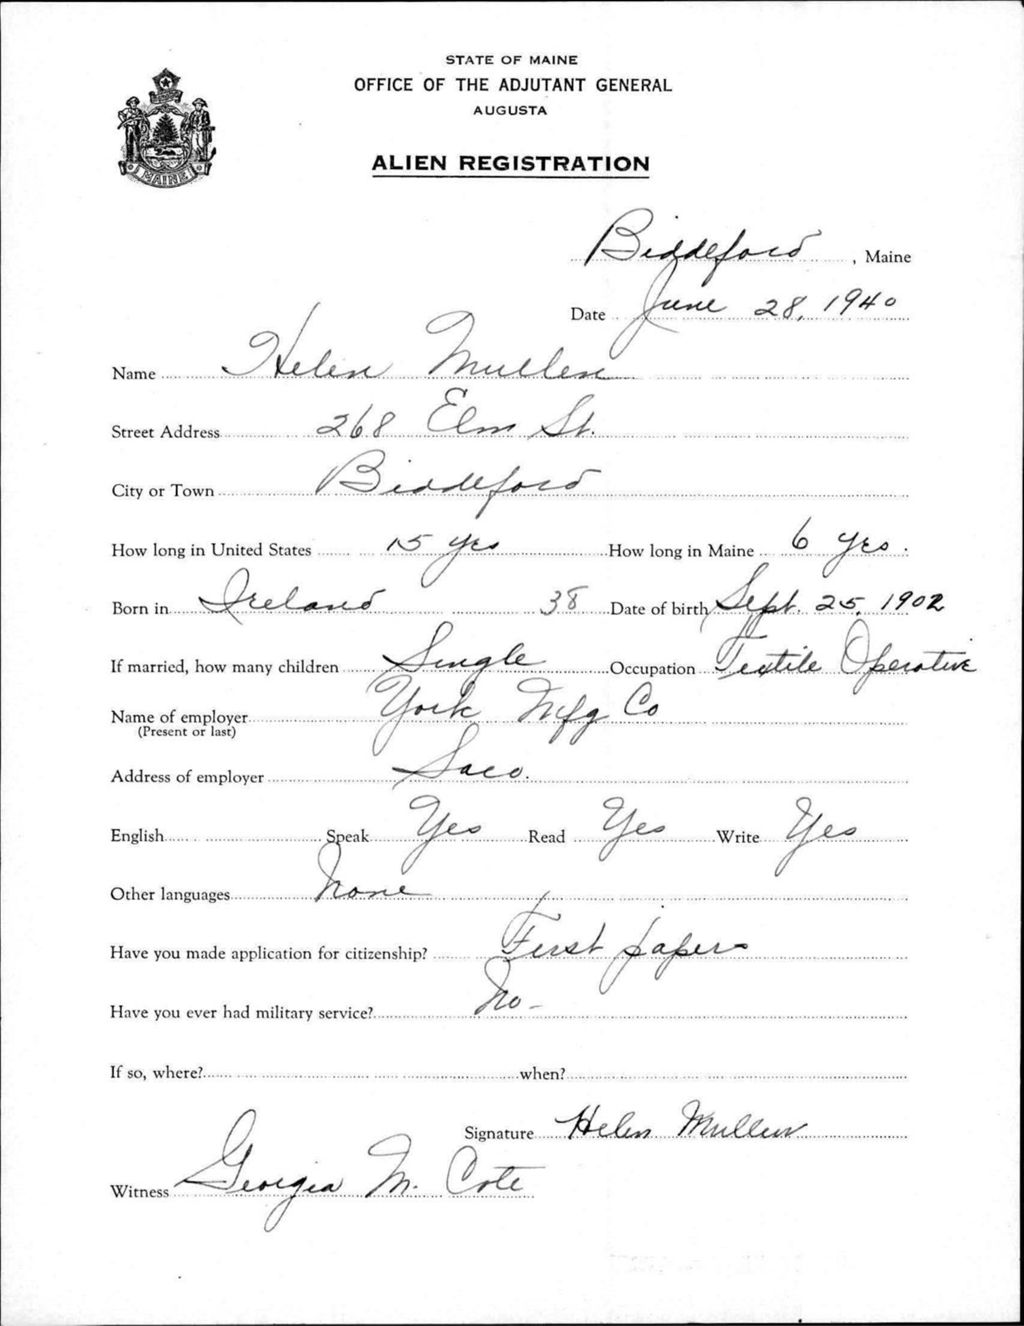 STATE OF MAINE
OFFICE OF THE ADJUTANT GENERAL
AUGUSTA
MAINE
ALIEN REGISTRATION
Biddeford, Maine
Date June 28, 1940
Name Helen Mullen
Street Address 268 Elm St.
City or Town Biddeford
How long in United States 15 yrs How long in Maine 6 yrs.
Born in Ireland 38 Date of birth Sept. 25, 1902
If married, how many children Single Occupation Textile Operative
Name of employer York Mfg Co
(Present or last)
Address of employer Saco.
English Speak Yes Read Yes Write Yes
Other languages None
Have you made application for citizenship? First papers
Have you ever had military service? No -
If so, where? when?
Signature Helen Mullen
Witness Georgia M. Cote